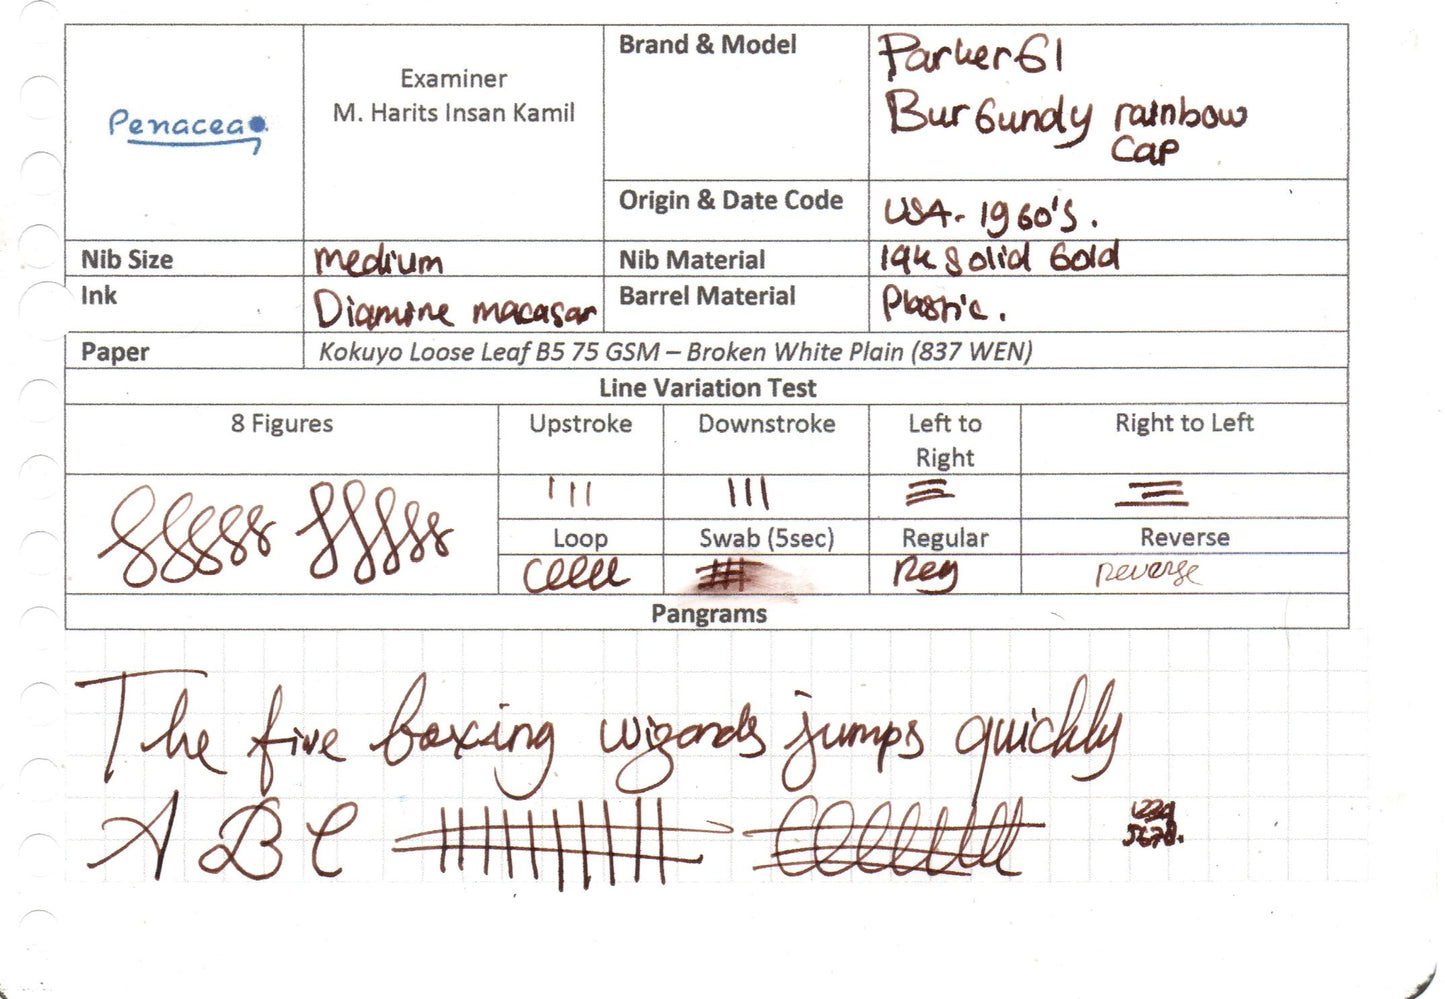 Penacea
Examiner
M. Harits Insan Kamil
Brand & Model
Parker 61
Burgundy rainbow
cap
Origin & Date Code
USA - 1960's.
Nib Size
medium
Nib Material
14k Solid Gold
Ink
Diamine macasar
Barrel Material
Plastic.
Paper
Kokuyo Loose Leaf B5 75 GSM – Broken White Plain (837 WEN)
Line Variation Test
8 Figures
Upstroke
Downstroke
Left to
Right
Right to Left
Loop
Swab (5sec)
Regular
Reverse
Reg
reverse
Pangrams
The five boxing wizards jumps quickly
A B C
1234
5678.